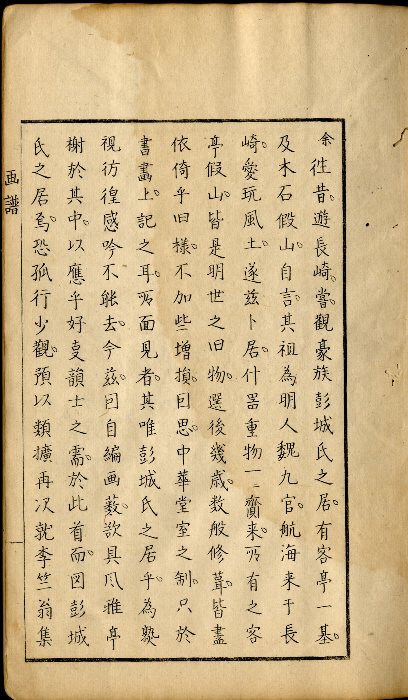 余徃昔。遊長﨑。甞觀豪族彭城氏之居。有客亭一基。
及木石假山。自言其祖為明人魏九官。航海来于長
﨑。愛玩風土。遂兹卜居。什噐重物一〻齎来。所有之客
亭假山。皆是明世之旧物。還後幾歳。数般修葺。皆盡
依倚乎旧様。不加些増損。囙思中華堂室之制。只於
書畵上。記之耳。所面見者。其唯彭城氏之居乎。為孰
視彷徨感吟不能去。今兹囙自編画薮。欲具凨雅亭
榭於其中。以應乎好叓韻士之需。於此首而圖彭城
氏之居焉。恐孤行少觀。預以類擴再次就李笠翁集
画譜